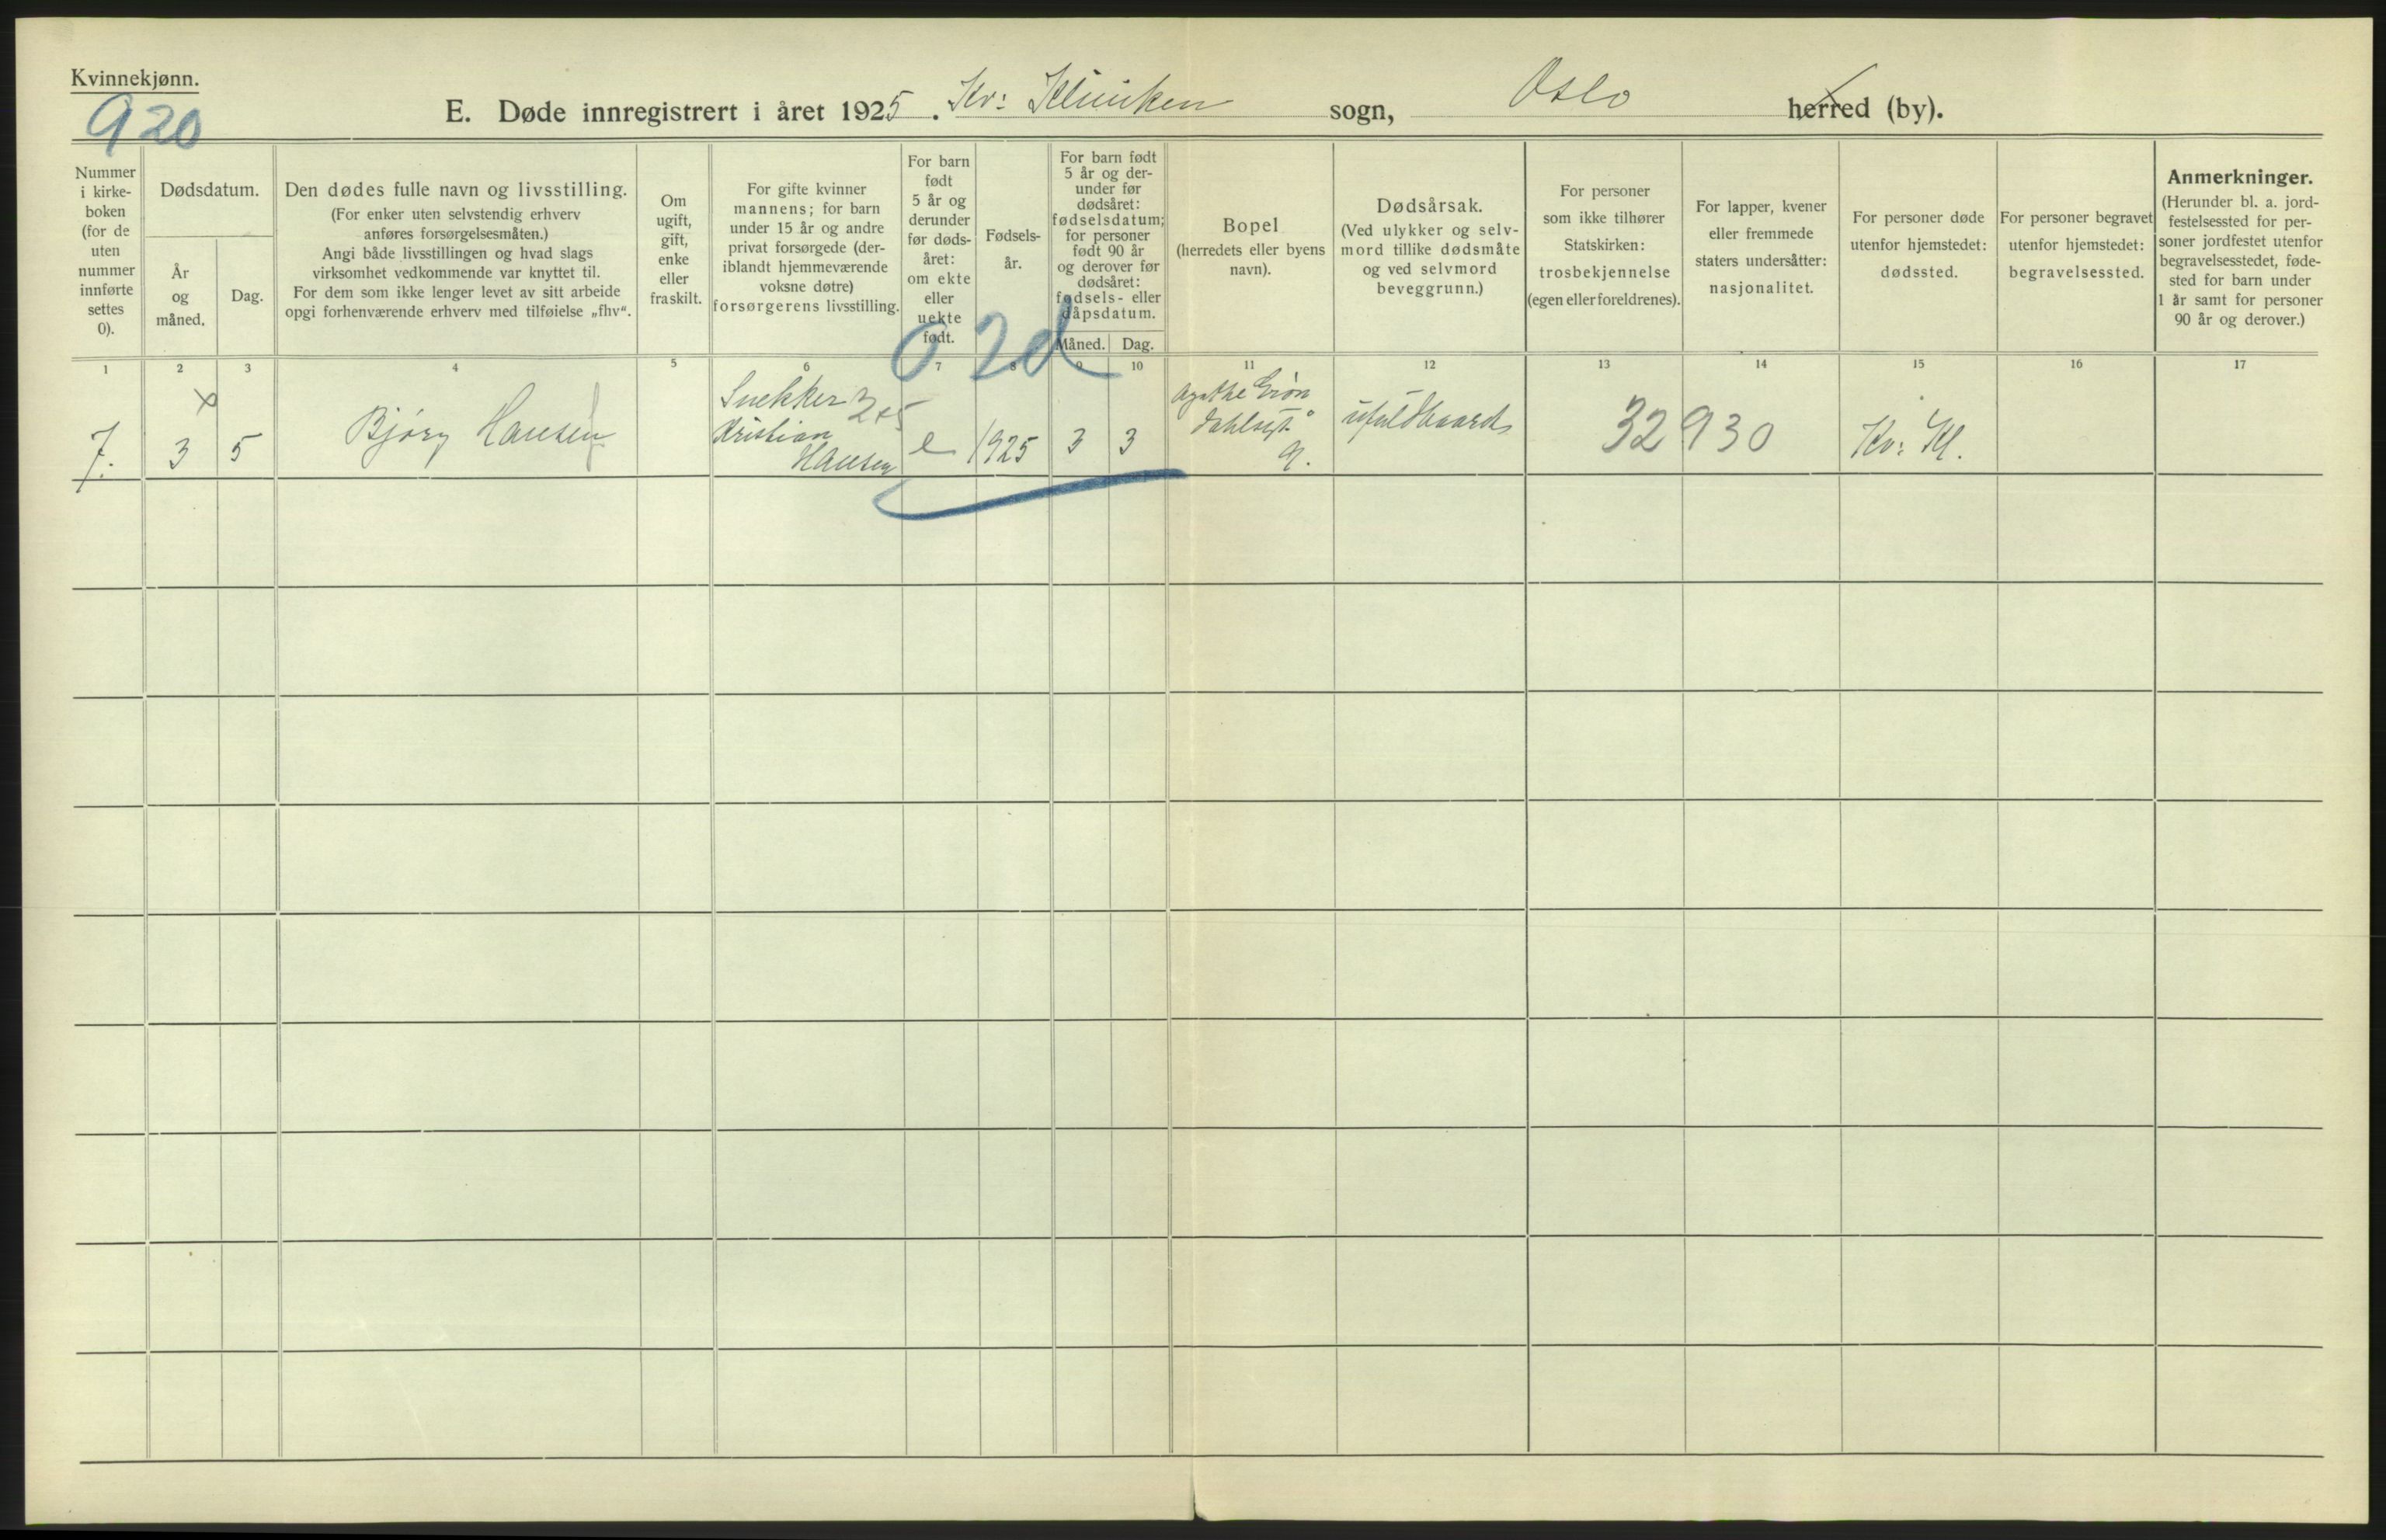 Kvinnekjønn.
920
E. Døde innregistrert i året 1925. Kv: Kliniken sogn, Oslo herred (by).
Nummer
i kirke-
boken
(for de
uten
nummer
innførte
settes
0).
Dødsdatum.
År
og
måned.
Dag.
Den dødes fulle navn og livsstilling.
(For enker uten selvstendig erhverv
anføres forsørgelsesmåten.)
Angi både livsstillingen og hvad slags
virksomhet vedkommende var knyttet til.
For dem som ikke lenger levet av sitt arbeide
opgi forhenværende erhverv med tilføielse „fhv“.
Om
ugift,
gift,
enke
eller
fraskilt.
For gifte kvinner
mannens; for barn
under 15 år og andre
privat forsørgede (der-
iblandt hjemmeværende
voksne døtre)
forsørgerens livsstilling.
For barn
født
5 år og
derunder
før døds-
året:
om ekte
eller
uekte
født.
Fødsels-
år.
For barn født
5 år og der-
under før
dødsåret:
fødselsdatum;
for personer
født 90 år
og derover før
dødsåret:
fødsels- eller
dåpsdatum.
Måned.
Dag.
Bopel
(herredets eller byens
navn).
Dødsårsak.
(Ved ulykker og selv-
mord tillike dødsmåte
og ved selvmord
beveggrunn.)
For personer
som ikke tilhører
Statskirken:
trosbekjennelse
(egen eller foreldrenes).
For lapper, kvener
eller fremmede
staters undersåtter:
nasjonalitet.
For personer døde
utenfor hjemstedet:
dødssted.
For personer begravet
utenfor hjemstedet:
begravelsessted.
Anmerkninger.
(Herunder bl. a. jord-
festelsessted for per-
soner jordfestet utenfor
begravelsesstedet, føde-
sted for barn under
1 år samt for personer
90 år og derover.)
0 2d
1 2 3 4 5 6 7 8 9 10 11 12 13 14 15 16 17
7.
x
3
5
Bjørg Hansen
Snekker 325
Kristian
Hansen
e
1925
3
3
Agathe Grøn
9.
32930
Kv: Kl.